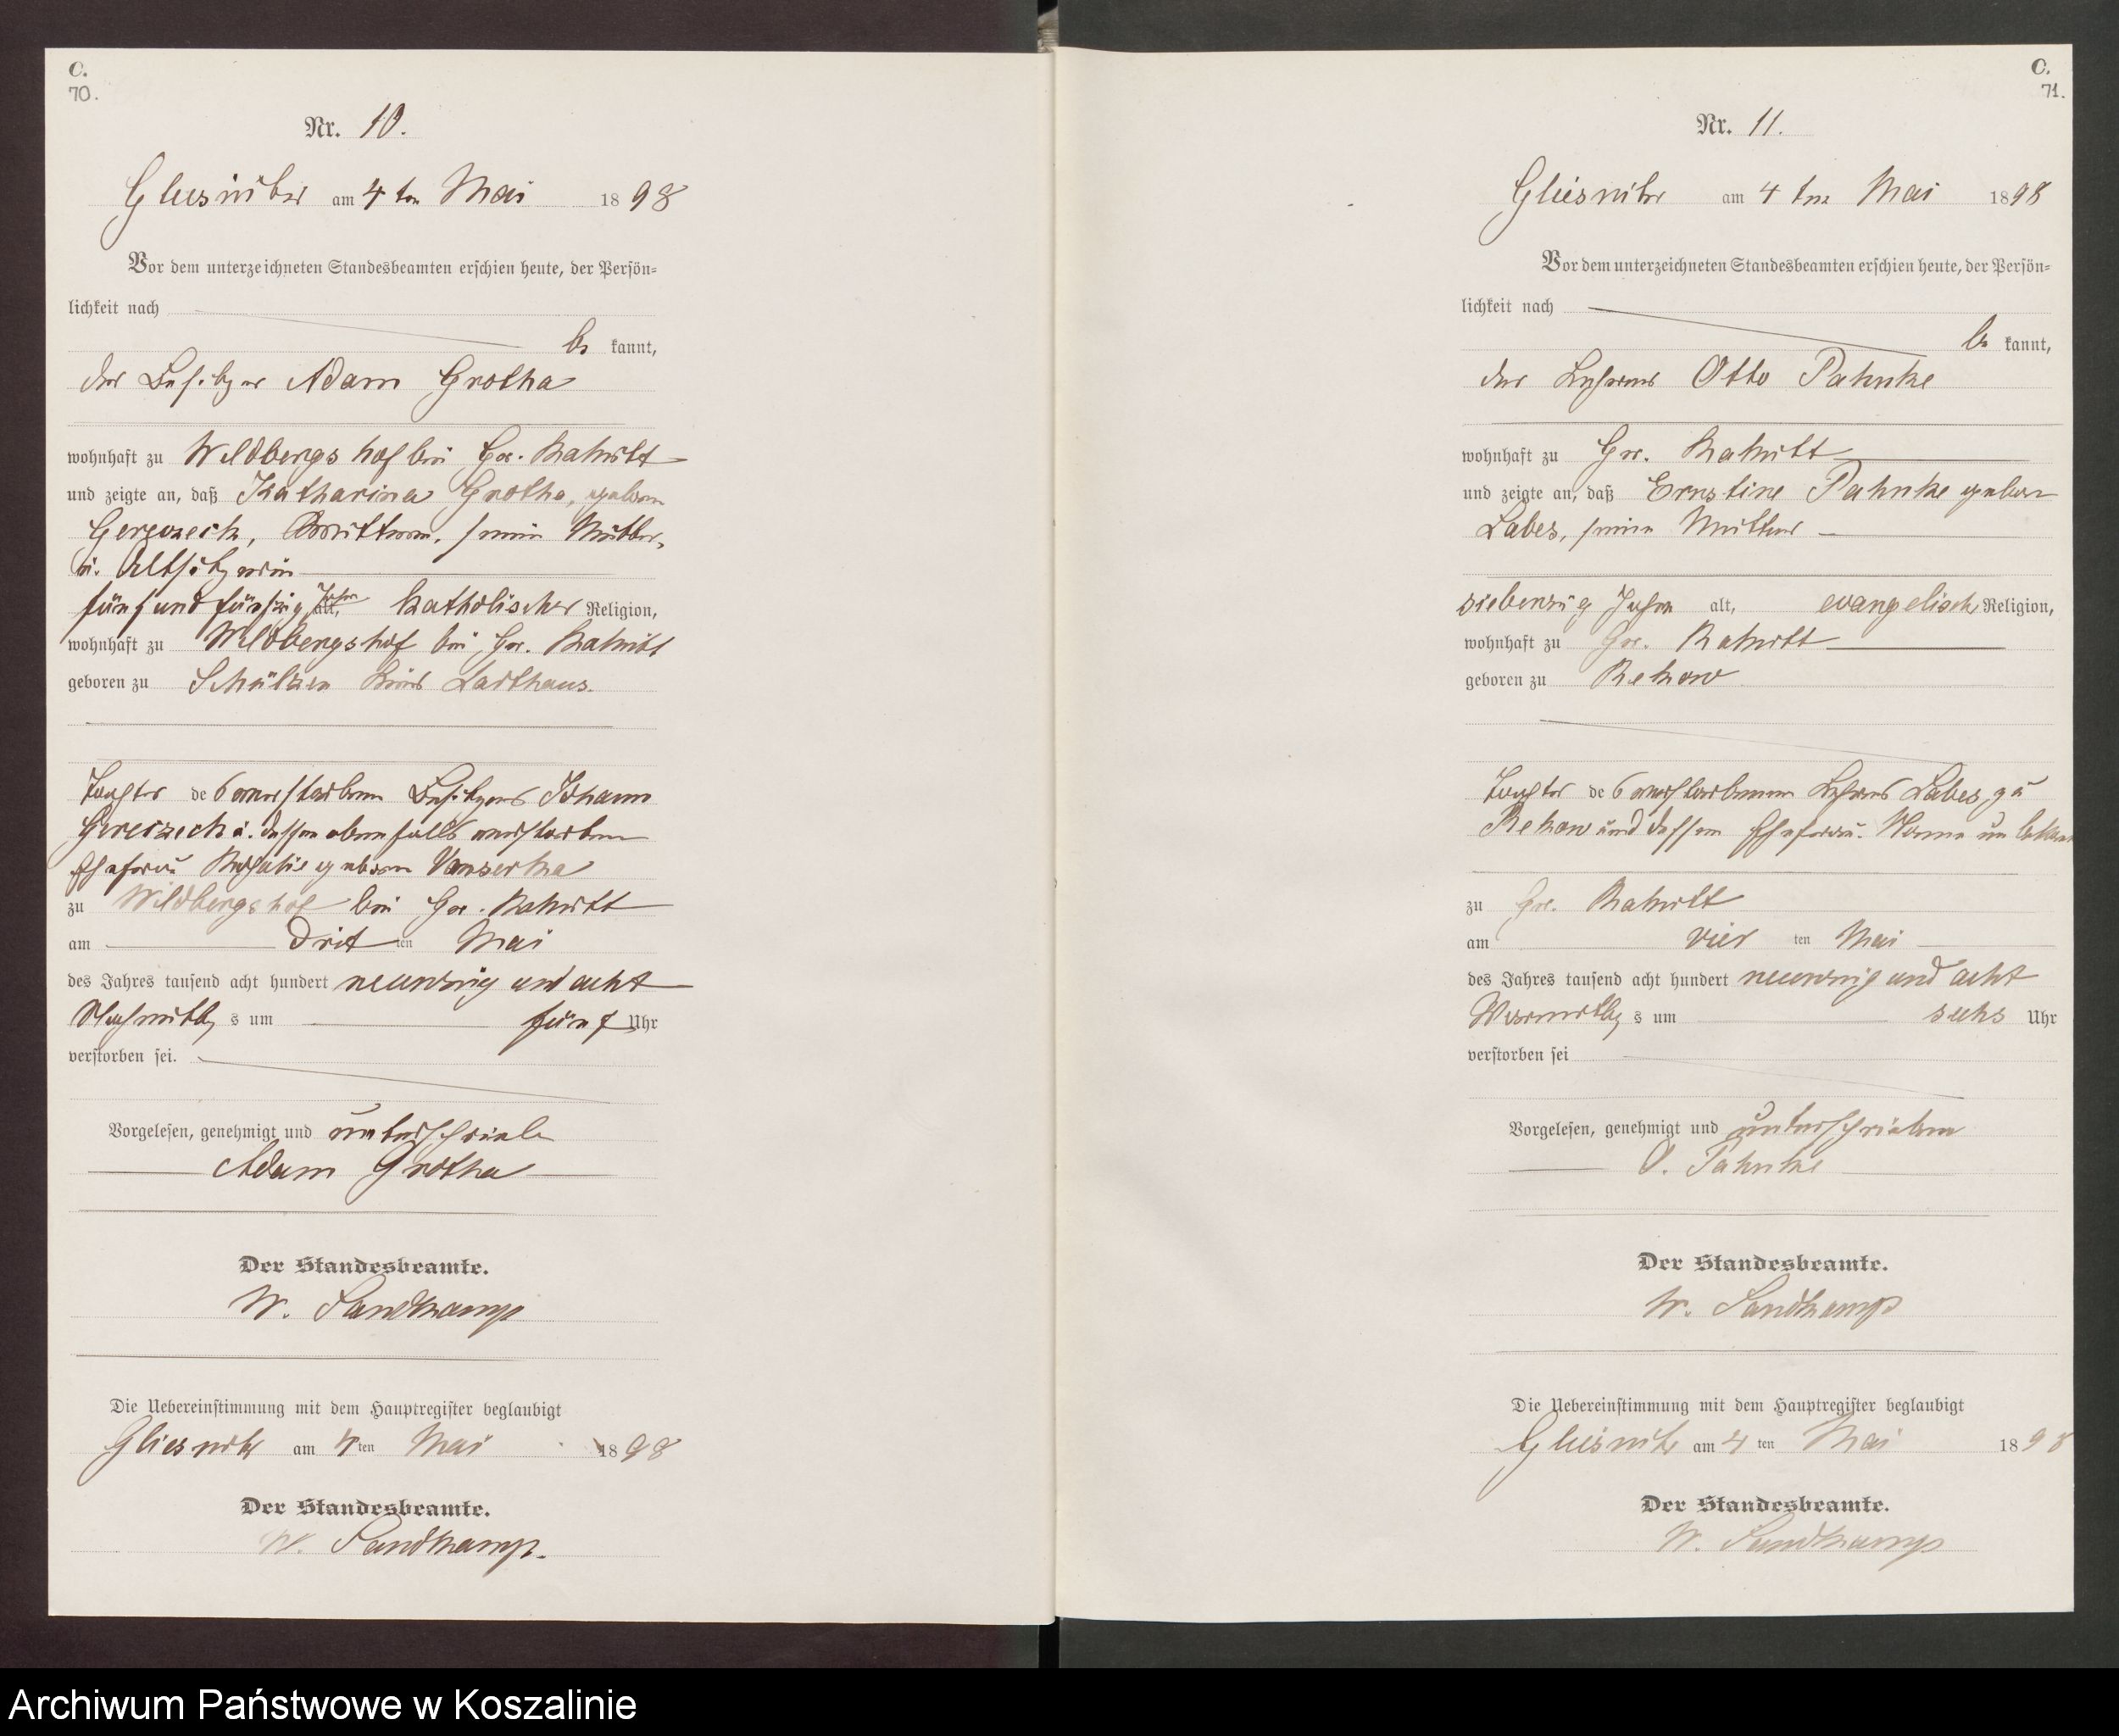 C.
70.
Nr. 10.
Gliesnitz am 4 ten Mai 1898
Vor dem unterzeichneten Standesbeamten erschien heute, der Persön-
lichkeit nach
be kannt,
der Besitzer Adam Grotha
wohnhaft zu Wildbergshof bei Gr. Rakitt
und zeigte an, daß Katharina Grotha, geborne
Wittwe, seine Mutter,
u. Altsitzerin
fünf und fünfzig Jahre alt, katholischer Religion,
wohnhaft zu Wildbergshof bei Gr. Rakitt
geboren zu Schülzen Kreis
Tochter des verstorbenen Besitzers Johann
u. dessen ebenfalls verstorbenen
Ehefrau geborne
zu Wildbergshof bei Gr. Rakitt
am drit ten Mai
des Jahres tausend acht hundert neunzig und acht
Nachmittag s um fünf Uhr
verstorben sei.
Vorgelesen, genehmigt und unterschrieben
Adam Grotha
Der Standesbeamte.
W. Sandkamp
Die Uebereinstimmung mit dem Hauptregister beglaubigt
Gliesnitz am 4 ten Mai 1898
Der Standesbeamte.
W. Sandkamp.
C.
71.
Nr. 11.
Gliesnitz am 4 ten Mai 1898
Vor dem unterzeichneten Standesbeamten erschien heute, der Persön-
lichkeit nach
be kannt,
der Lehrer Otto Pahnke
wohnhaft zu Gr. Rakitt
und zeigte an, daß Ernstine Pahnke geborne
Labes, seine Mutter
siebenzig Jahre alt, evangelisch Religion,
wohnhaft zu Gr. Rakitt
geboren zu Rekow
Tochter des verstorbenen Lehrers Labes, zu
Rekow und dessen Ehefrau. Name unbekannt
zu Gr. Rakitt
am vier ten Mai
des Jahres tausend acht hundert neunzig und acht
Vormittag s um sechs Uhr
verstorben sei
Vorgelesen, genehmigt und unterschrieben
O. Pahnke
Der Standesbeamte.
W. Sandkamp
Die Uebereinstimmung mit dem Hauptregister beglaubigt
Gliesnitz am 4 ten Mai 1898
Der Standesbeamte.
W. Sandkamp
Archiwum Państwowe w Koszalinie